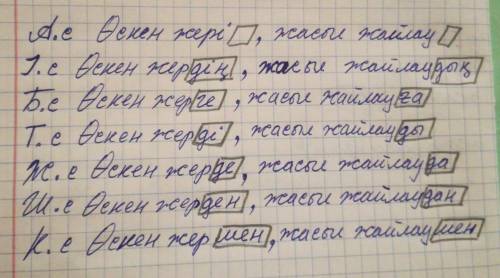 А.с Өскен жері, жасыл жайлау
І.с Өскен жердің, жасыл жайлаудың
Б.с Өскен жерге, жасыл жайлауға
Т.с Өскен жерді, жасыл жайлауды
Ж.с Өскен жерде, жасыл жайлауда
Ш.с Өскен жерден, жасыл жайлаудан
К.с Өскен жермен, жасыл жайлаумен